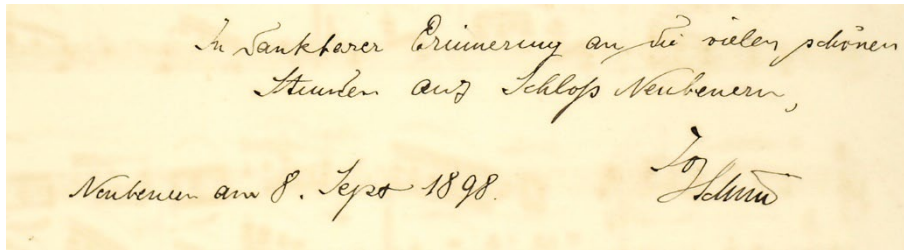 In dankbarer Erinnerung an die vielen schönen
Stunden auf Schloß Neubeuern,
Jos
Neubeuern am 8. Sept 1898.